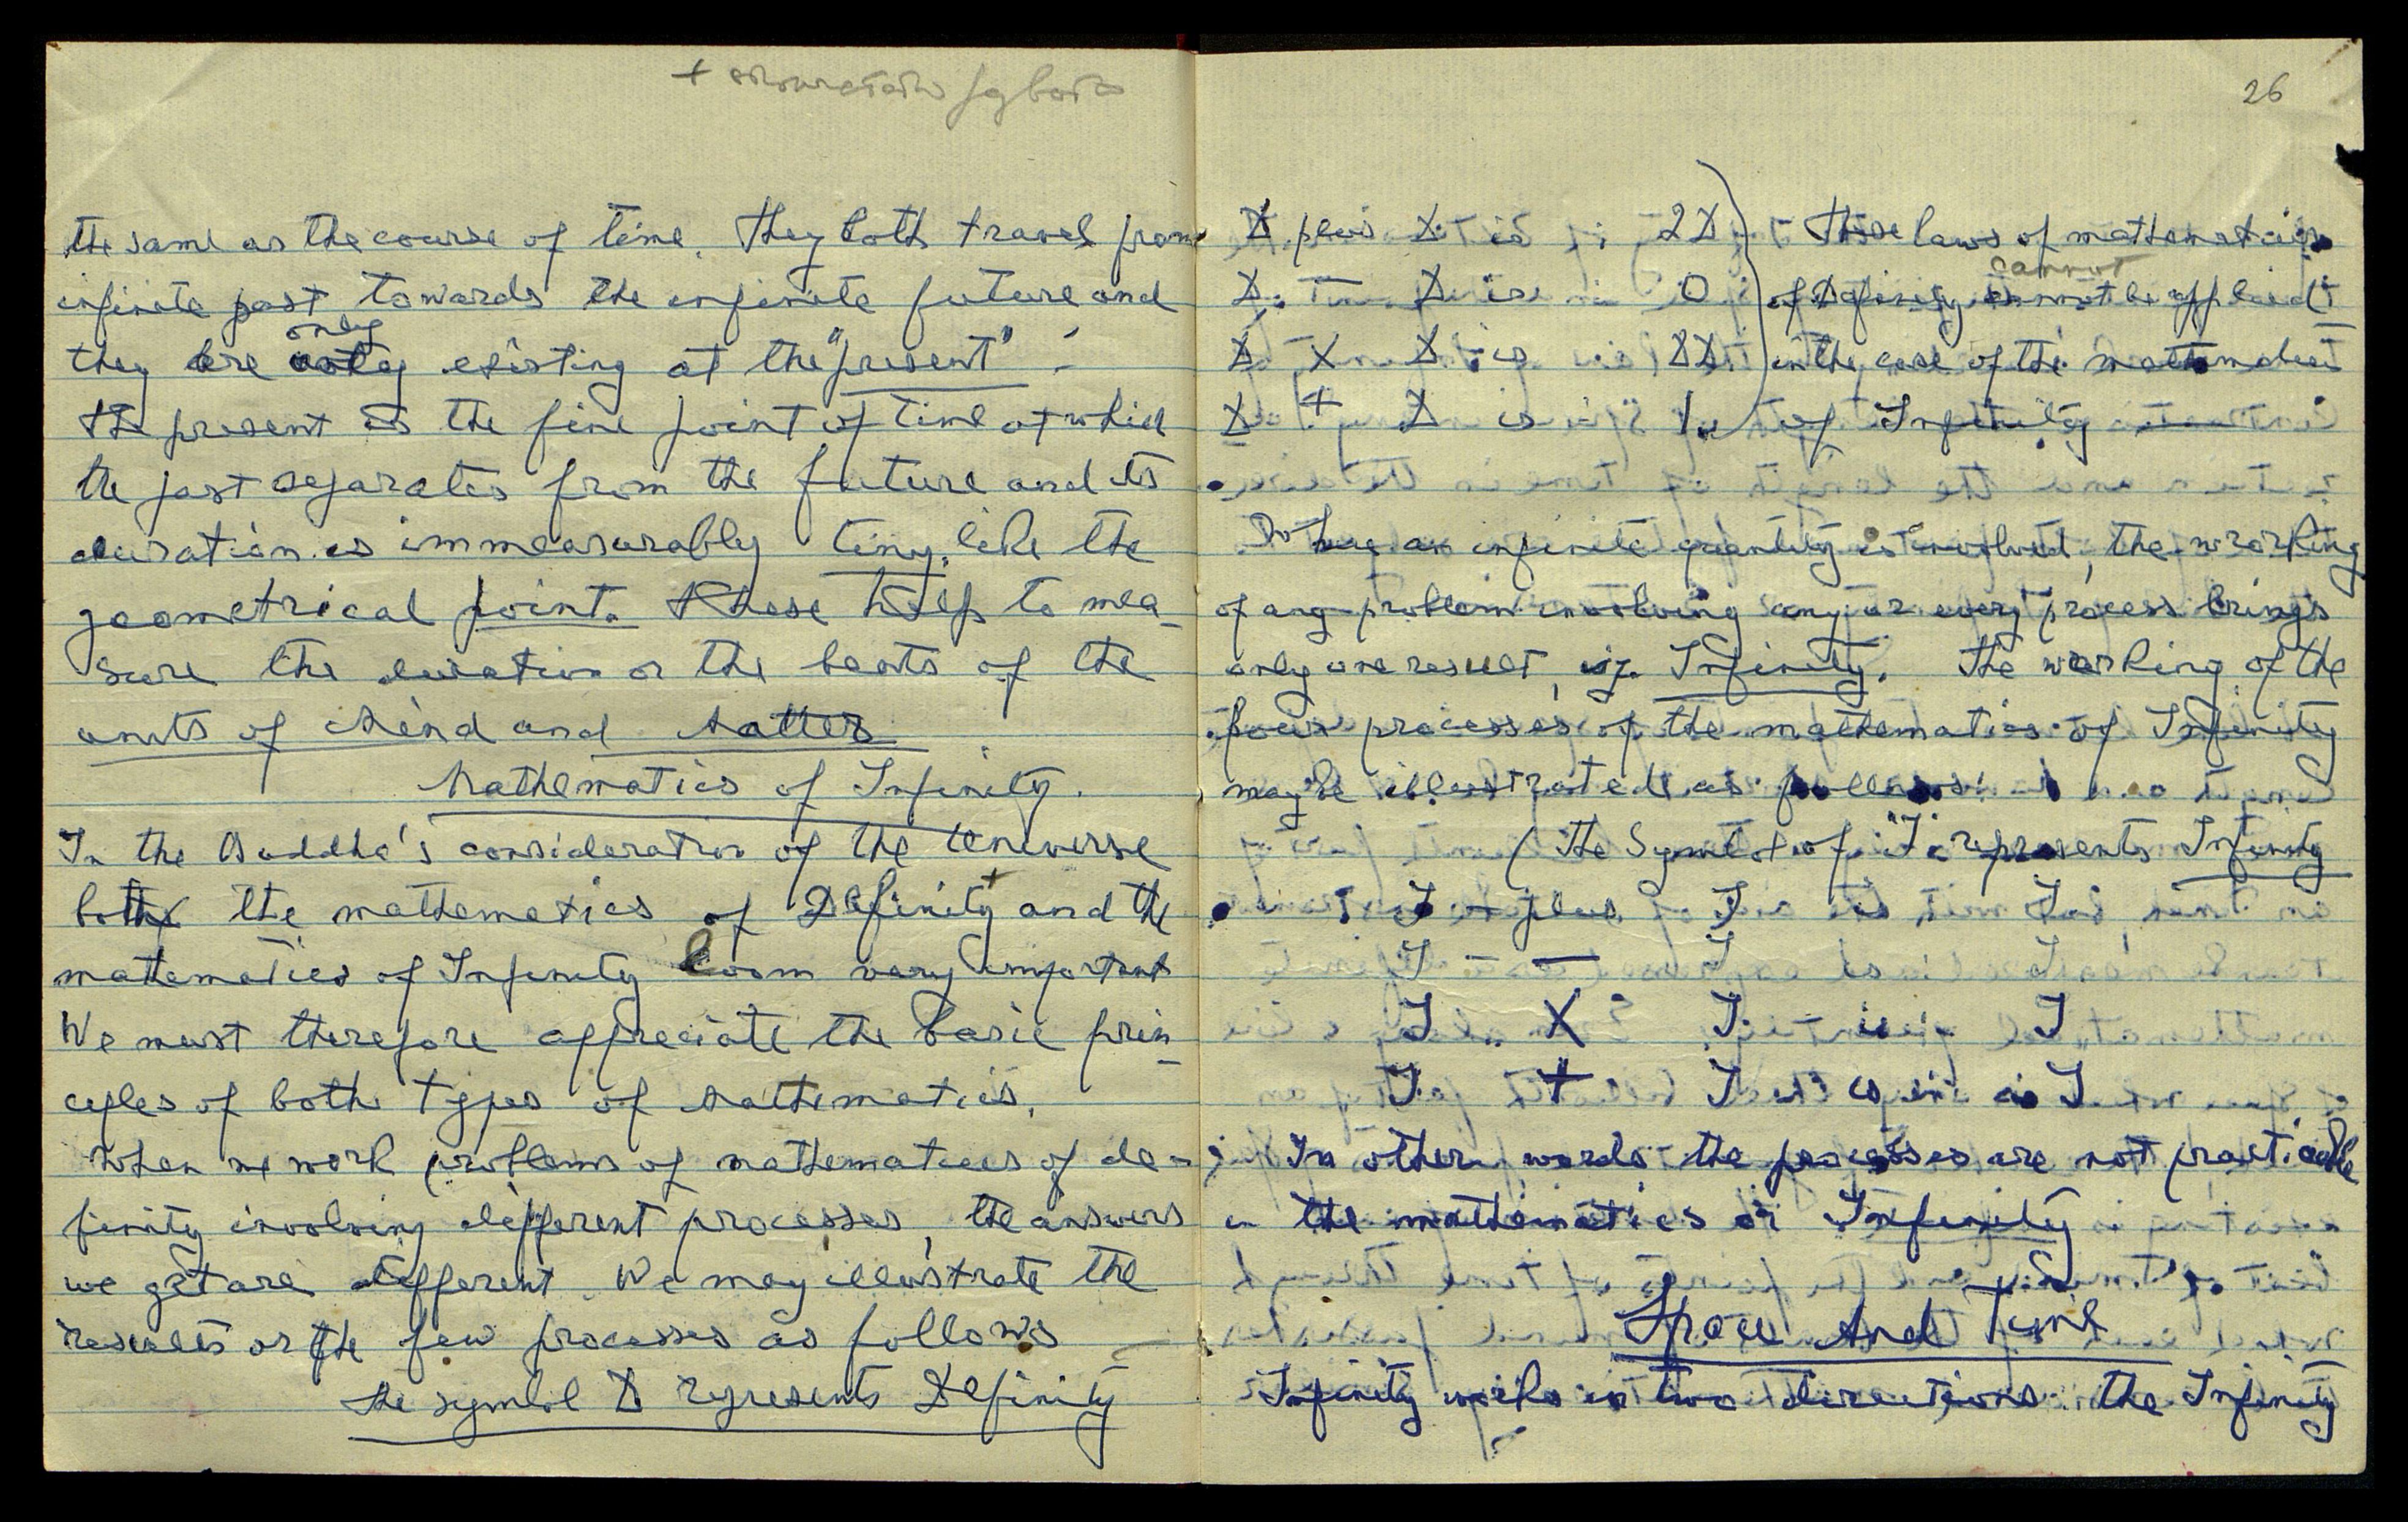 the same as the course of time. They both travel from
infinite past towards the infinite future and
only
they are existing at the "present" -
the present is the fine point of time at which
the past separates from the future and its
duration is immeasurably tiny, like the
geometrical point. These help to mea-
sure the duration or the beats of the
units of Mind and Matter
Mathematics of Infinity.
In the Buddha's consideration of the Universe
both the mathematics of Definity+ and the
mathematics of Infinity loom very important
We must therefore appreciate the basic prin-
cyles of both types of Mathematics.
When we work problems of mathematics of de-
finity involving different processes, the answers
we get are different. We may illustrate the
results or the few processes as follows
the symbol D represents Definity
26
D plus D is 2D
D - D is 0
D X D is DD
D ÷ D is 1
These laws of mathematics
cannot
of Definity cannot be applied
in the case of the mathematics
of Infinity
an infinite quantity is involved, the working
of any problem involving any or every process brings
only one result, viz. Infinity. The working of the
four processes of the mathematics of Infinity
may be illustrated as follows:
(The Symbol of "I" represents Infinity
I plus I is I
I — I is I
I X I is I
I ÷ I is I
In other words the processes are not practicable
in the mathematics of Infinity
Space And Time
Infinity works in two directions: the Infinity